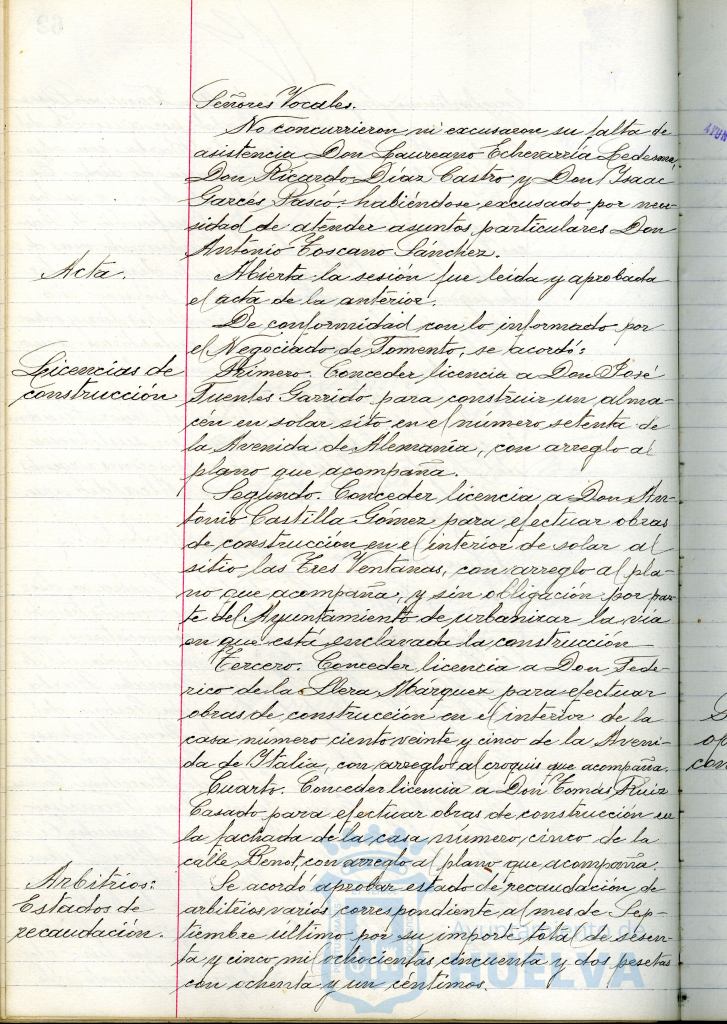 Señores Vocales.
No concurrieron ni excusaron su falta de
asistencia Don Laureano Echevarría Ledesma,
Don Ricardo Díaz Castro y Don Isaac
Garcés Pascó: habiéndose excusado por nece-
sidad de atender asuntos particulares Don
Antonio Toscano Sánchez.
Acta.
Abierta la sesión fue leída y aprobada
el acta de la anterior.
De conformidad con lo informado por
el Negociado de Fomento, se acordó:
Licencias de
construcción
Primero. Conceder licencia a Don José
Fuentes Garrido para construir un alma-
cén en solar sito en el número setenta de
la Avenida de Alemania, con arreglo al
plano que acompaña.
Segundo. Conceder licencia a Don An-
tonio Castilla Gómez para efectuar obras
de construcción en el interior de solar al
sitio las Tres Ventanas, con arreglo al pla-
no que acompaña, y sin obligación por par-
te del Ayuntamiento de urbanizar la vía
en que está enclavada la construcción
Tercero. Conceder licencia a Don Fede-
rico de la Llera Márquez para efectuar
obras de construcción en el interior de la
casa número ciento veinte y cinco de la Aveni-
da de Italia, con arreglo al croquis que acompaña.
Cuarto. Conceder licencia a Don Tomás Ruiz
Casado para efectuar obras de construcción en
la fachada de la casa número cinco de la
calle Benot, con arreglo al plano que acompaña.
Arbitrios:
Estados de
recaudación.
Se acordó aprobar estado de recaudación de
arbitrios varios correspondiente al mes de Sep-
tiembre último por su importe total de sesen-
ta y cinco mil ochocientas cincuenta y dos pesetas
con ochenta y un céntimos.
Ayuntamiento de
HUELVA